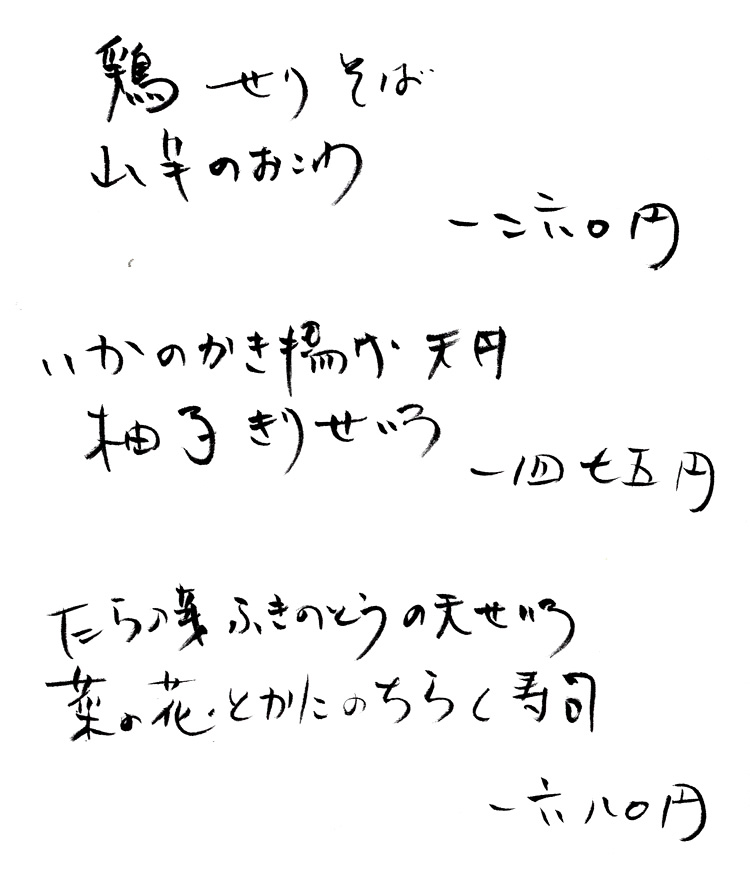 鶏 せり そば
山芋のおこわ
一二六〇円
いかのかき揚げ 天丼
柚子きりせいろ
一四七五円
たらの芽 ふきのとうの天せいろ
菜の花とかにのちらし寿司
一六八〇円